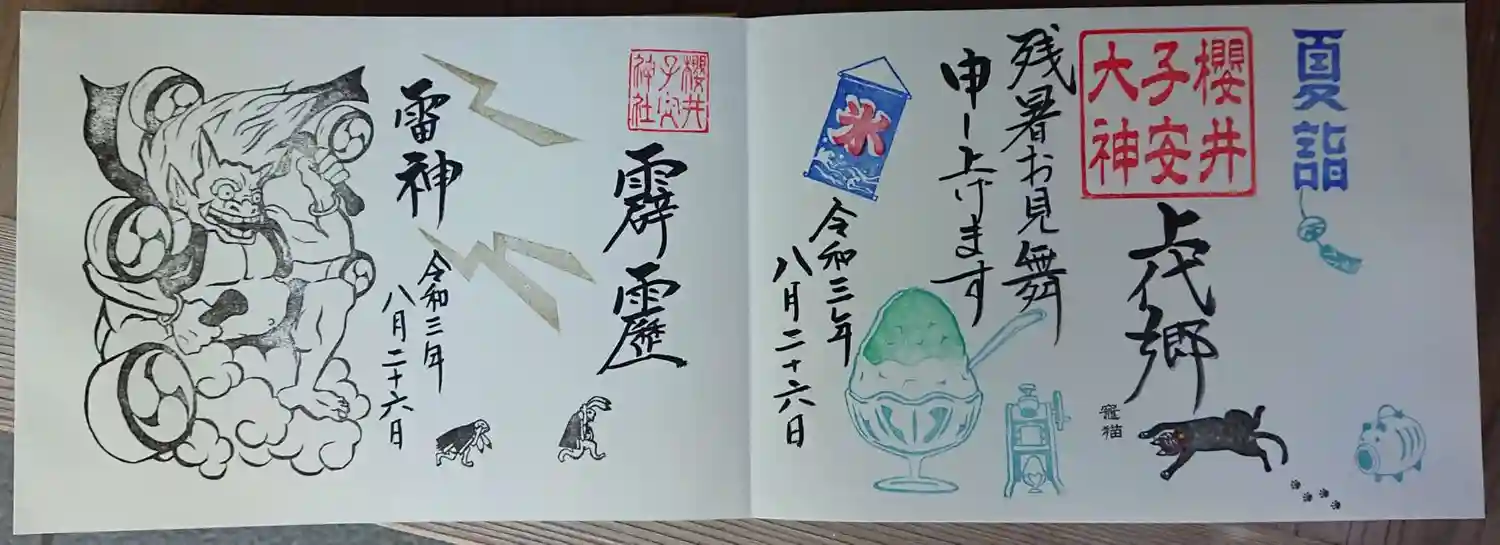 夏詣
櫻井
子安
大神
上代郷
竈猫
残暑お見舞
申し上げます
氷
令和三年
八月二十六日
櫻井
子安
神社
霹靂
雷神
令和三年
八月二十六日